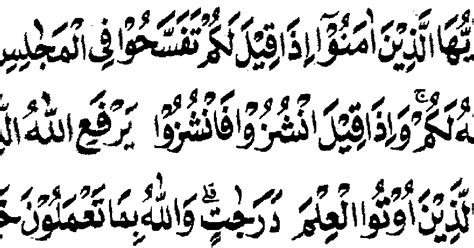 يُّهَا الَّذِيْنَ اٰمَنُوْۤا اِذَا قِيْلَ لَكُمْ تَفَسَّحُوْا فِى الْمَجٰلِسِ
هُ لَكُمْ ۚ وَاِذَا قِيْلَ انْشُزُوْا فَانْشُزُوْا يَرْفَعِ اللّٰهُ الَّ
الَّذِيْنَ اُوْتُوا الْعِلْمَ دَرَجٰتٍ ؕ وَاللّٰهُ بِمَا تَعْمَلُوْنَ خَ